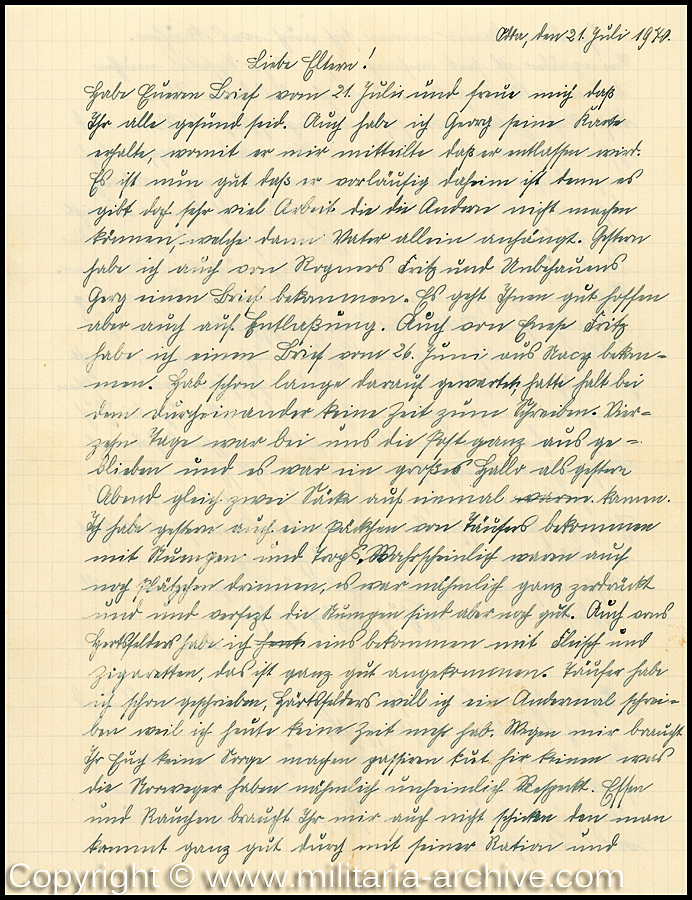 den 21. Juli 1940.
Liebe Eltern!
Habe Eueren Brief vom 21. Julii und freue mich daß
Ihr alle gesund seid. Auch habe ich Georg seine Karte
erhalte, womit er mir mitteilte daß er entlassen wird.
Es ist nun gut daß er vorläufig daheim ist denn es
gibt doch sehr viel Arbeit die die Andern nicht machen
können, welche dann Vater allein anhängt. Gestern
habe ich auch von Fritz und Unbehauens
Gerg einen Brief bekommen. Es geht Ihnen gut hoffen
aber auch auf Entlaßung. Auch von Fritz
habe ich einen Brief vom 26. Juni aus bekom-
men. Hab schon lange darauf gewartet, hatte halt bei
dem durcheinander keine Zeit zum Schreiben. Vier-
zehn Tage war bei uns die Post ganz aus ge-
blieben und es war ein großes Hallo als gestern
Abend gleich zwei Säcke auf einmal waren kamen.
Ich habe gestern auch ein Päckchen von Täufers bekommen
mit Stumpen und Drops. Wahrscheinlich waren auch
noch Plätzchen drinnen, es war nähmlich ganz zerdrückt
und und verfezt die Stumpen sind aber noch gut. Auch von
Hertsfelders habe ich eins bekommen mit Fleisch und
Zigaretten, das ist ganz gut angekommen. Täufer habe
ich schon geschrieben, Härtsfelders will ich ein Andermal schrei-
ben weil ich heute keine Zeit mehr hab. Wegen mir braucht
Ihr Euch keine Sorge machen passiren tut hir keinen was
die Norweger haben nähmlich unheimlich Respeckt. Essen
und Rauchen braucht Ihr mir auch nicht schicken den man
kommt ganz gut durch mit seiner Ration und
Copyright © www.militaria-archive.com